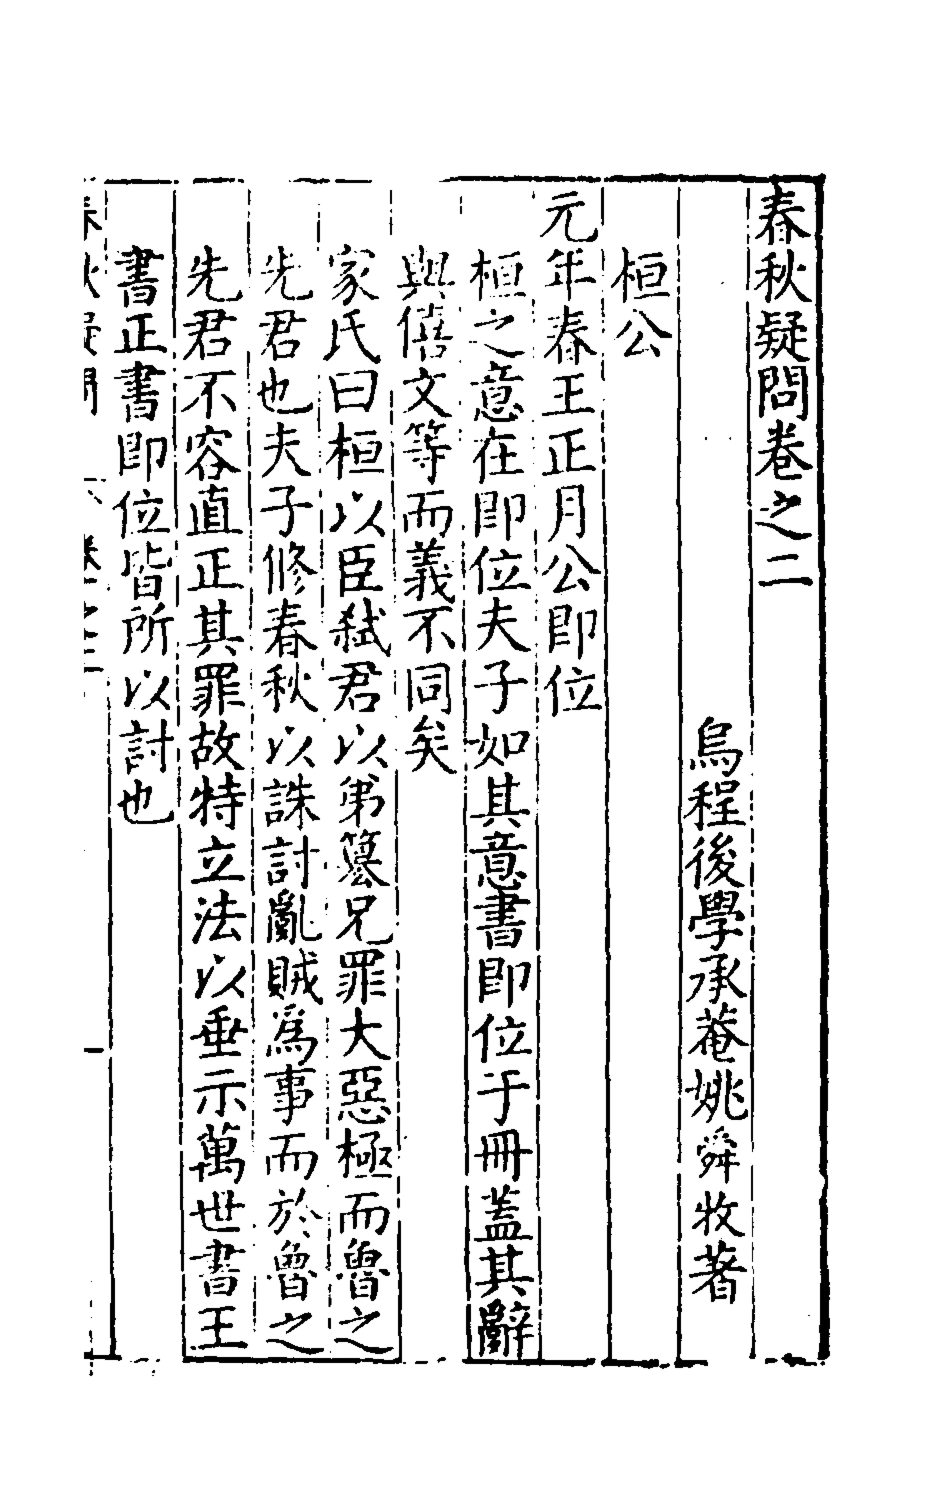 春秋疑問卷之二
烏程後學承菴姚舜牧著
桓公
元年春王正月公即位
桓之意在即位夫子如其意書即位于冊蓋其辭
與僖文等而義不同矣
家氏曰桓以臣弑君以弟簒兄罪大惡極而魯之
先君也夫子修春秋以誅討亂賊爲事而於魯之
先君不容直正其罪故特立法以垂示萬世書王
書正書即位皆所以討也